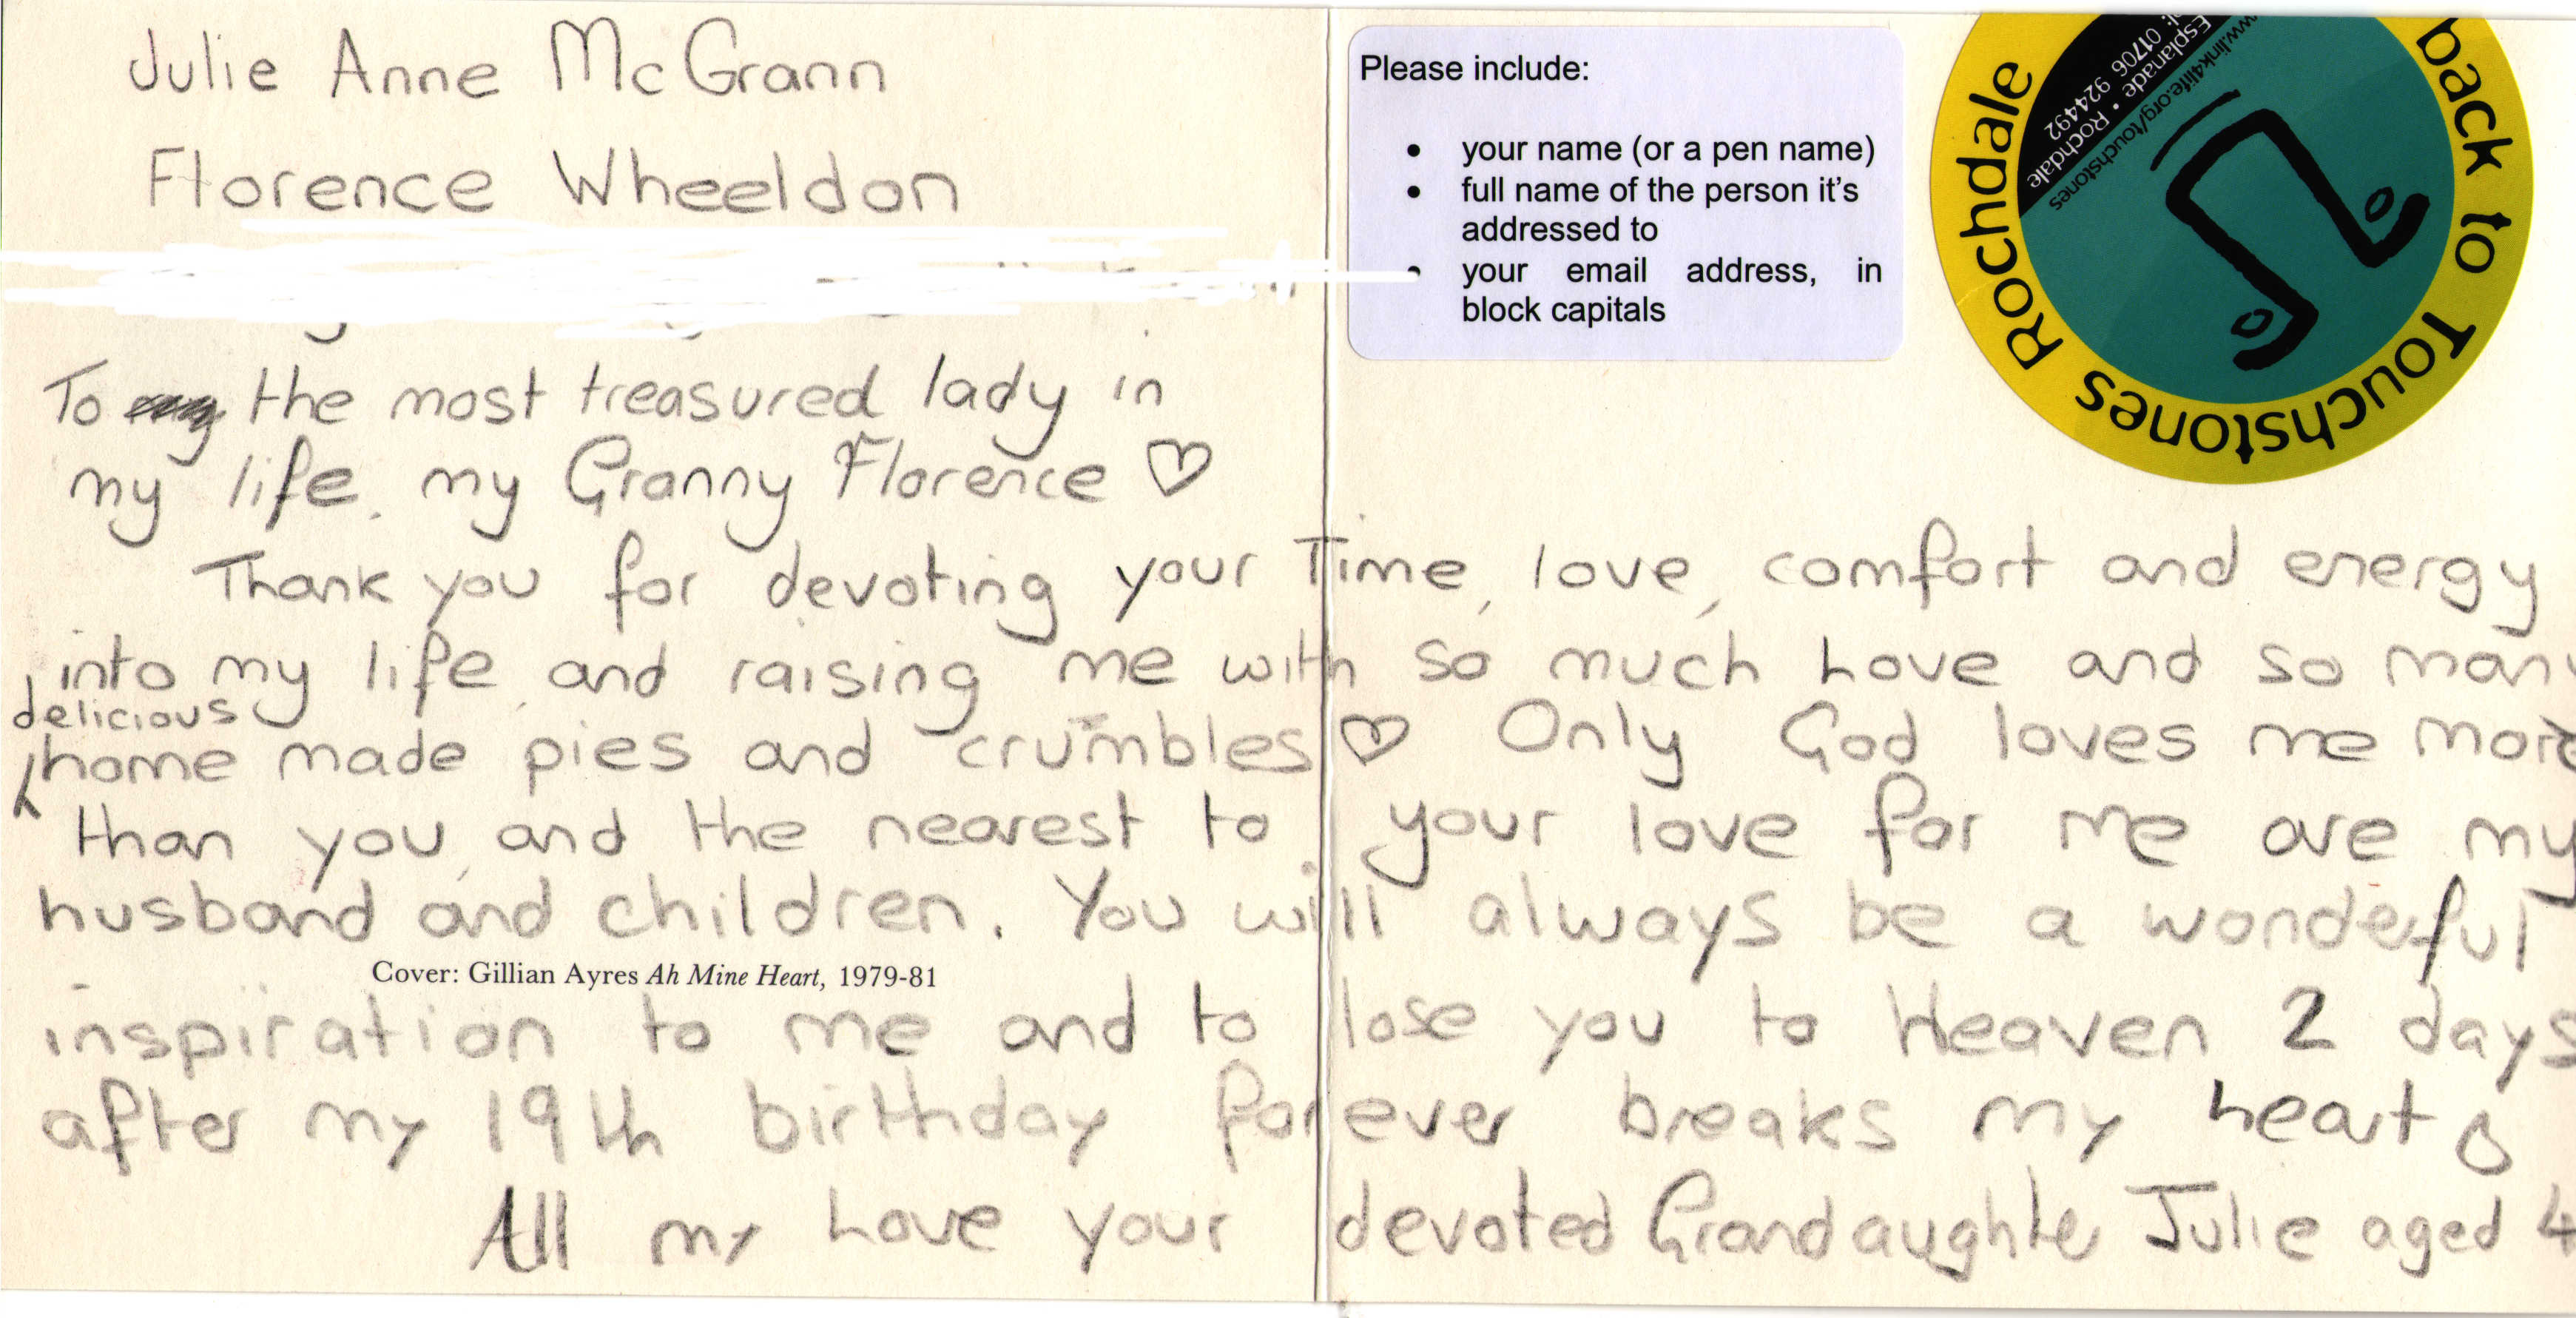 Julie Anne McGrann
Florence Wheeldon
Please include:
• your name (or a pen name)
• full name of the person it's
addressed to
• your email address, in
block capitals
Rochdale
back to Touchstones
Esplanade • Rochdale
01706 924492
www.link4life.org/touchstones
To the most treasured lady in
my life, my Granny Florence ♡
Thank you for devoting your Time, love, comfort and energy
into my life, and raising me with so much Love and so many
delicious
home made pies and crumbles ♡ Only God loves me more
than you, and the nearest to your love for me are my
husband and children. You will always be a wonderful
Cover: Gillian Ayres Ah Mine Heart, 1979-81
inspiration to me and to lose you to Heaven 2 days
after my 19th birthday forever breaks my heart
All my Love your devoted Grandaughter Julie aged 4